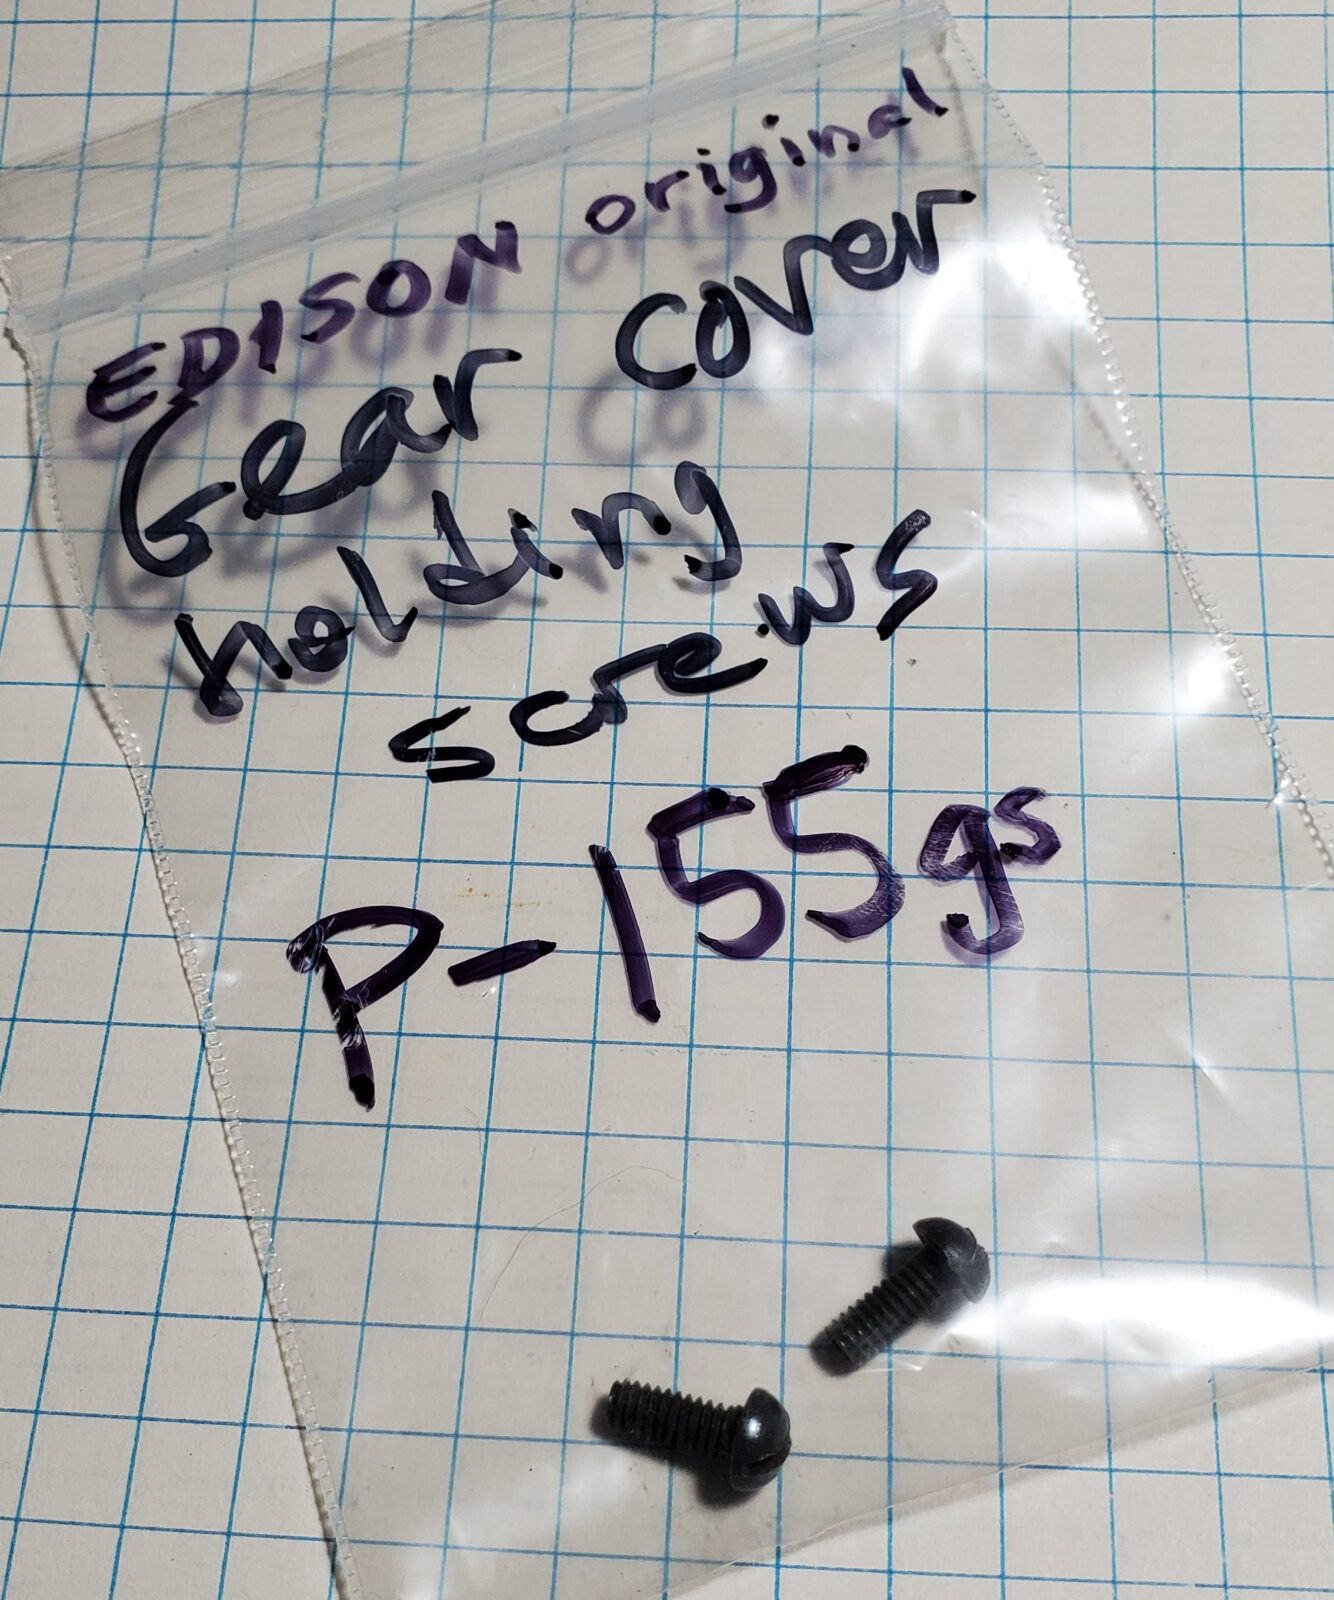 EDISON original
Gear cover
holding
screws
P-155gs